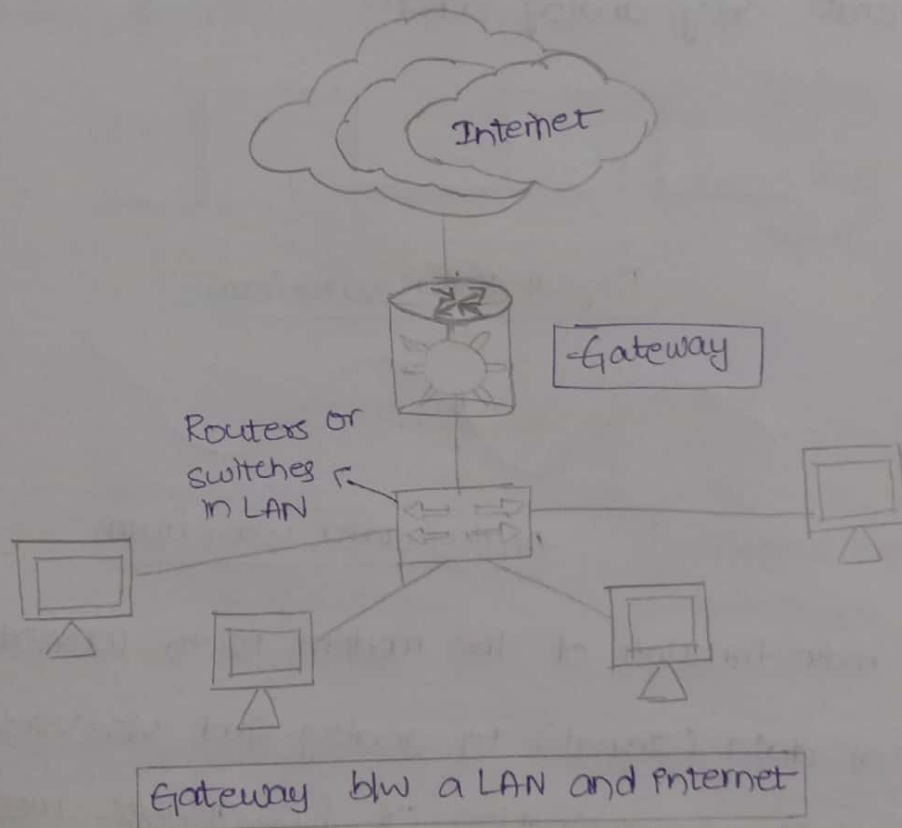 Internet
Gateway
Routers or
switches
in LAN
Gateway b/w a LAN and internet